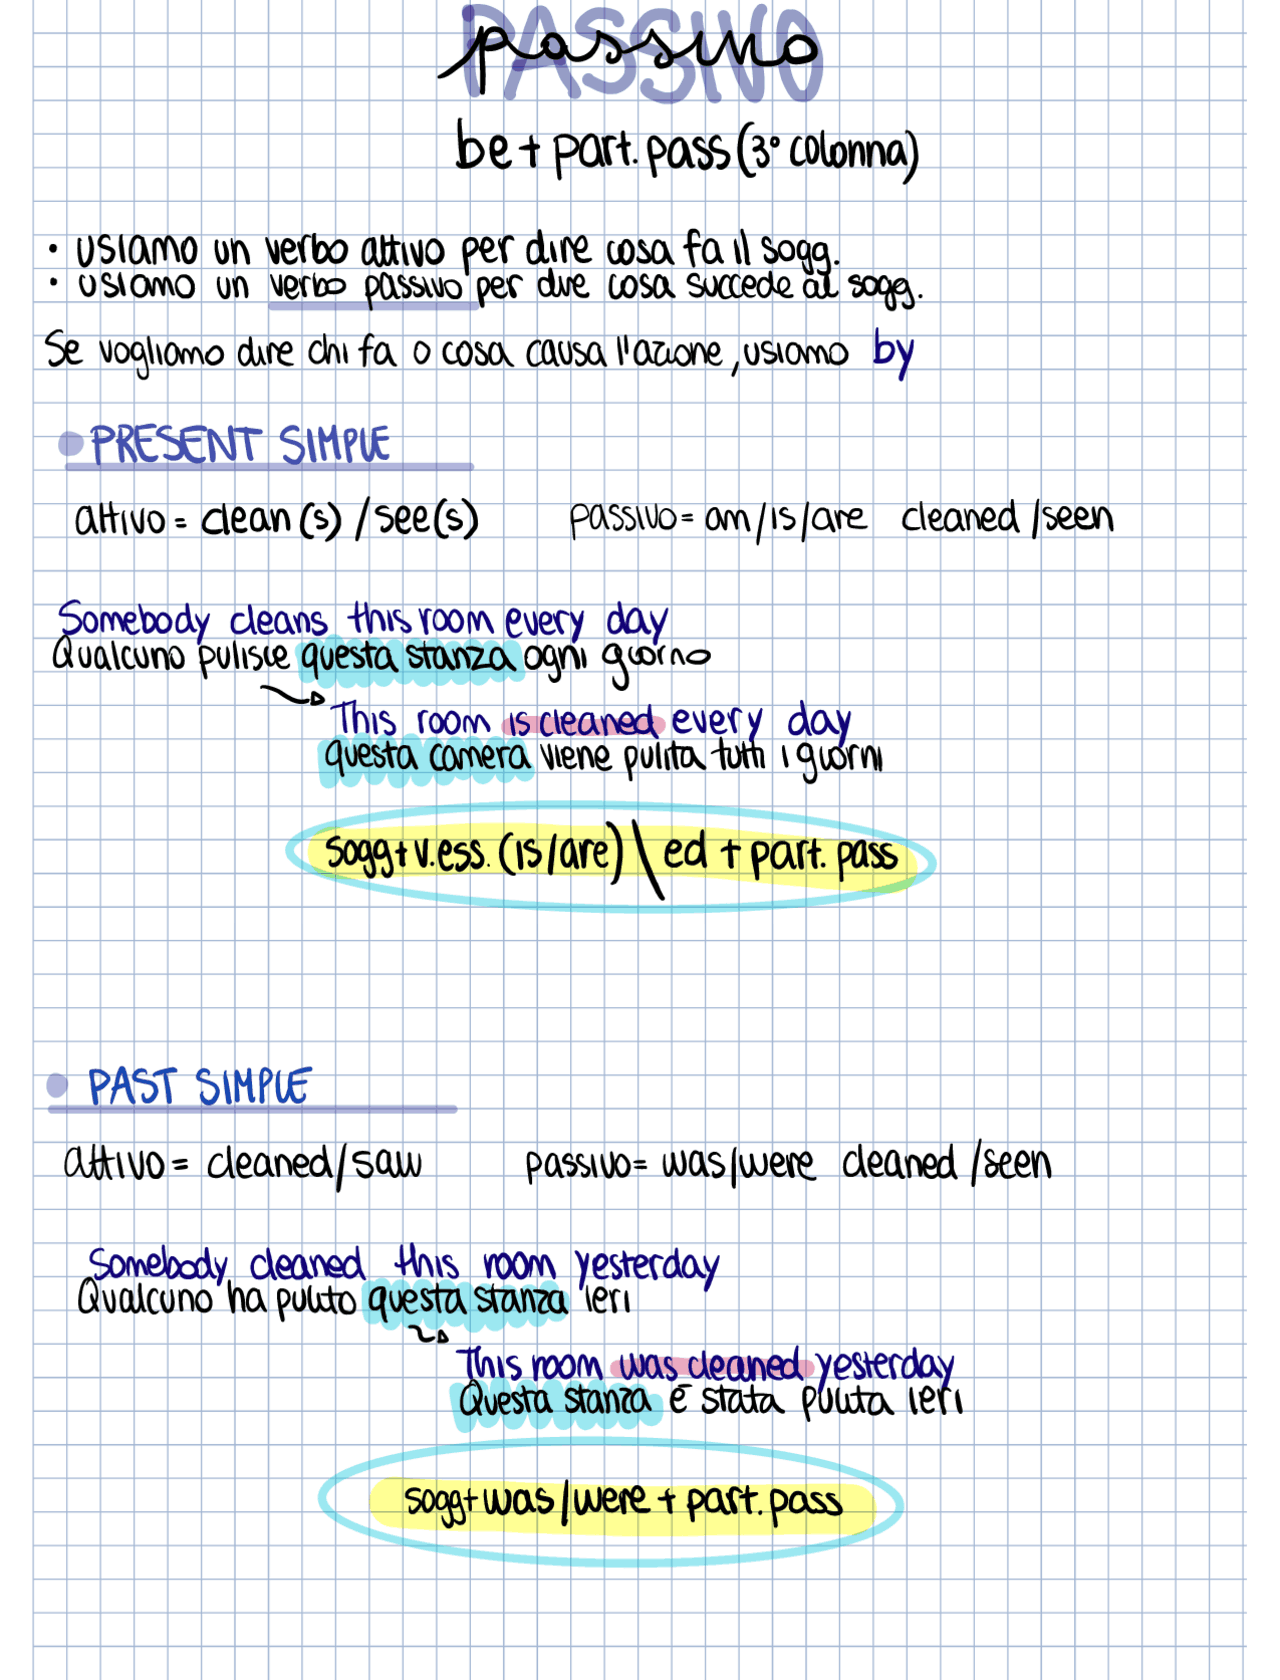 PASSIVO
passivo
be + part. pass (3° colonna)
• usiamo un verbo attivo per dire cosa fa il sogg.
• usiamo un verbo passivo per dire cosa succede al sogg.
Se vogliamo dire chi fa o cosa causa l'azione, usiamo by
• PRESENT SIMPLE
attivo = clean (s) / see(s) passivo = am/is/are cleaned / seen
Somebody cleans this room every day
Qualcuno pulisce questa stanza ogni giorno
This room is cleaned every day
questa camera viene pulita tutti i giorni
sogg + v. ess. (is/are) \ ed + part. pass
• PAST SIMPLE
attivo = cleaned/saw passivo = was/were cleaned / seen
Somebody cleaned this room yesterday
Qualcuno ha pulito questa stanza ieri
This room was cleaned yesterday
Questa stanza è stata pulita ieri
sogg + was/were + part. pass